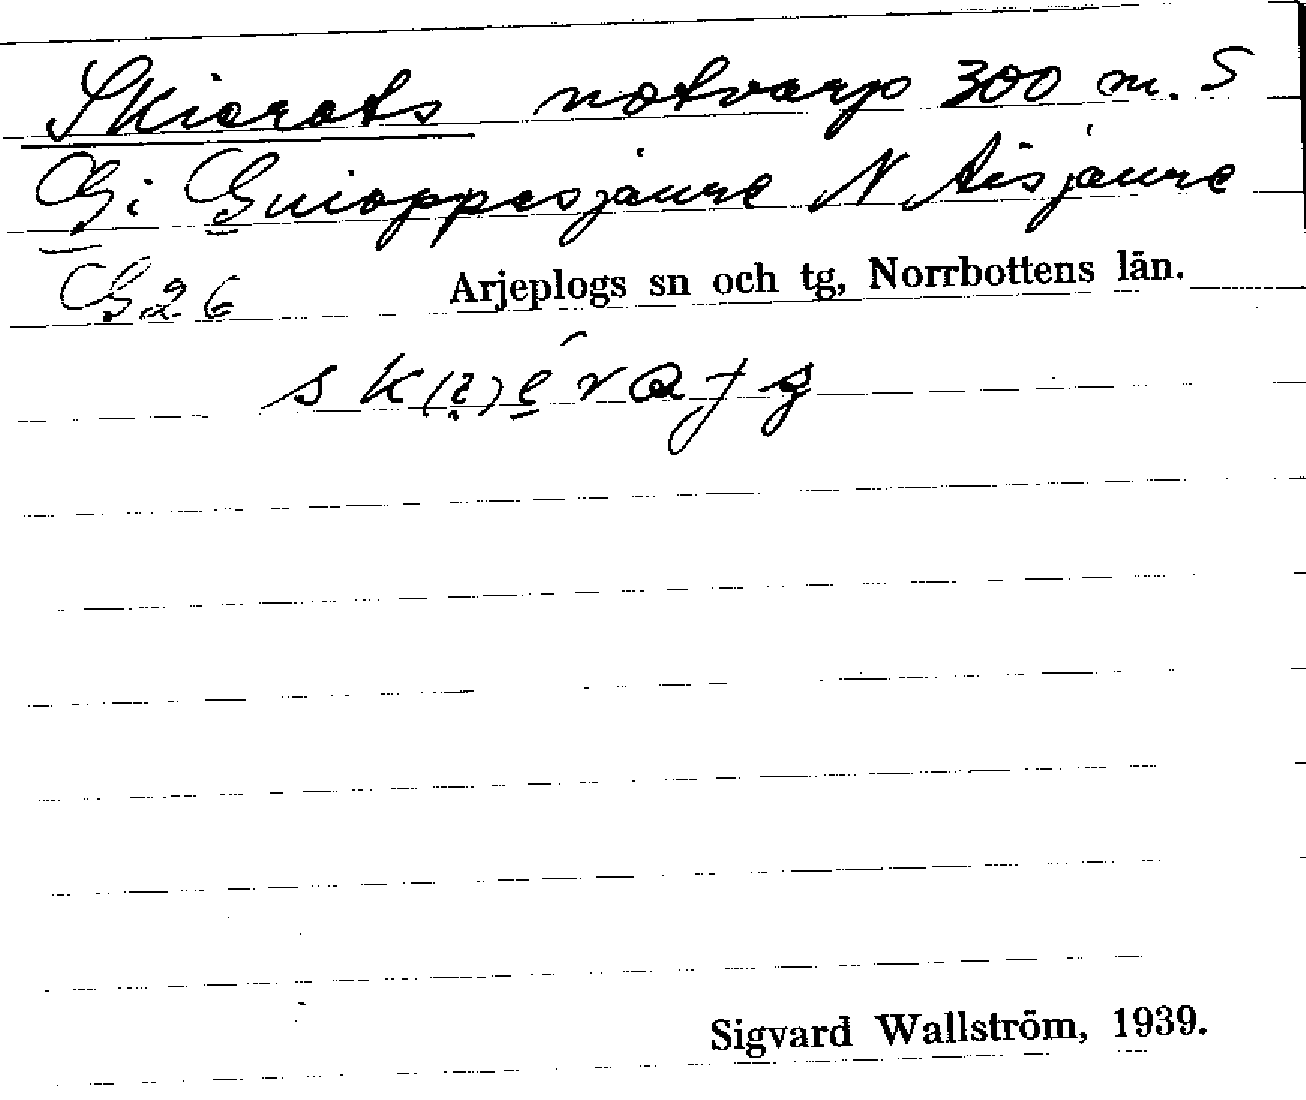 Skierats notvarp 300 m. S
G: Guioppesjaure N Aisjaure
G 26 Arjeplogs sn och tg, Norrbottens län.
Sigvard Wallström, 1939.